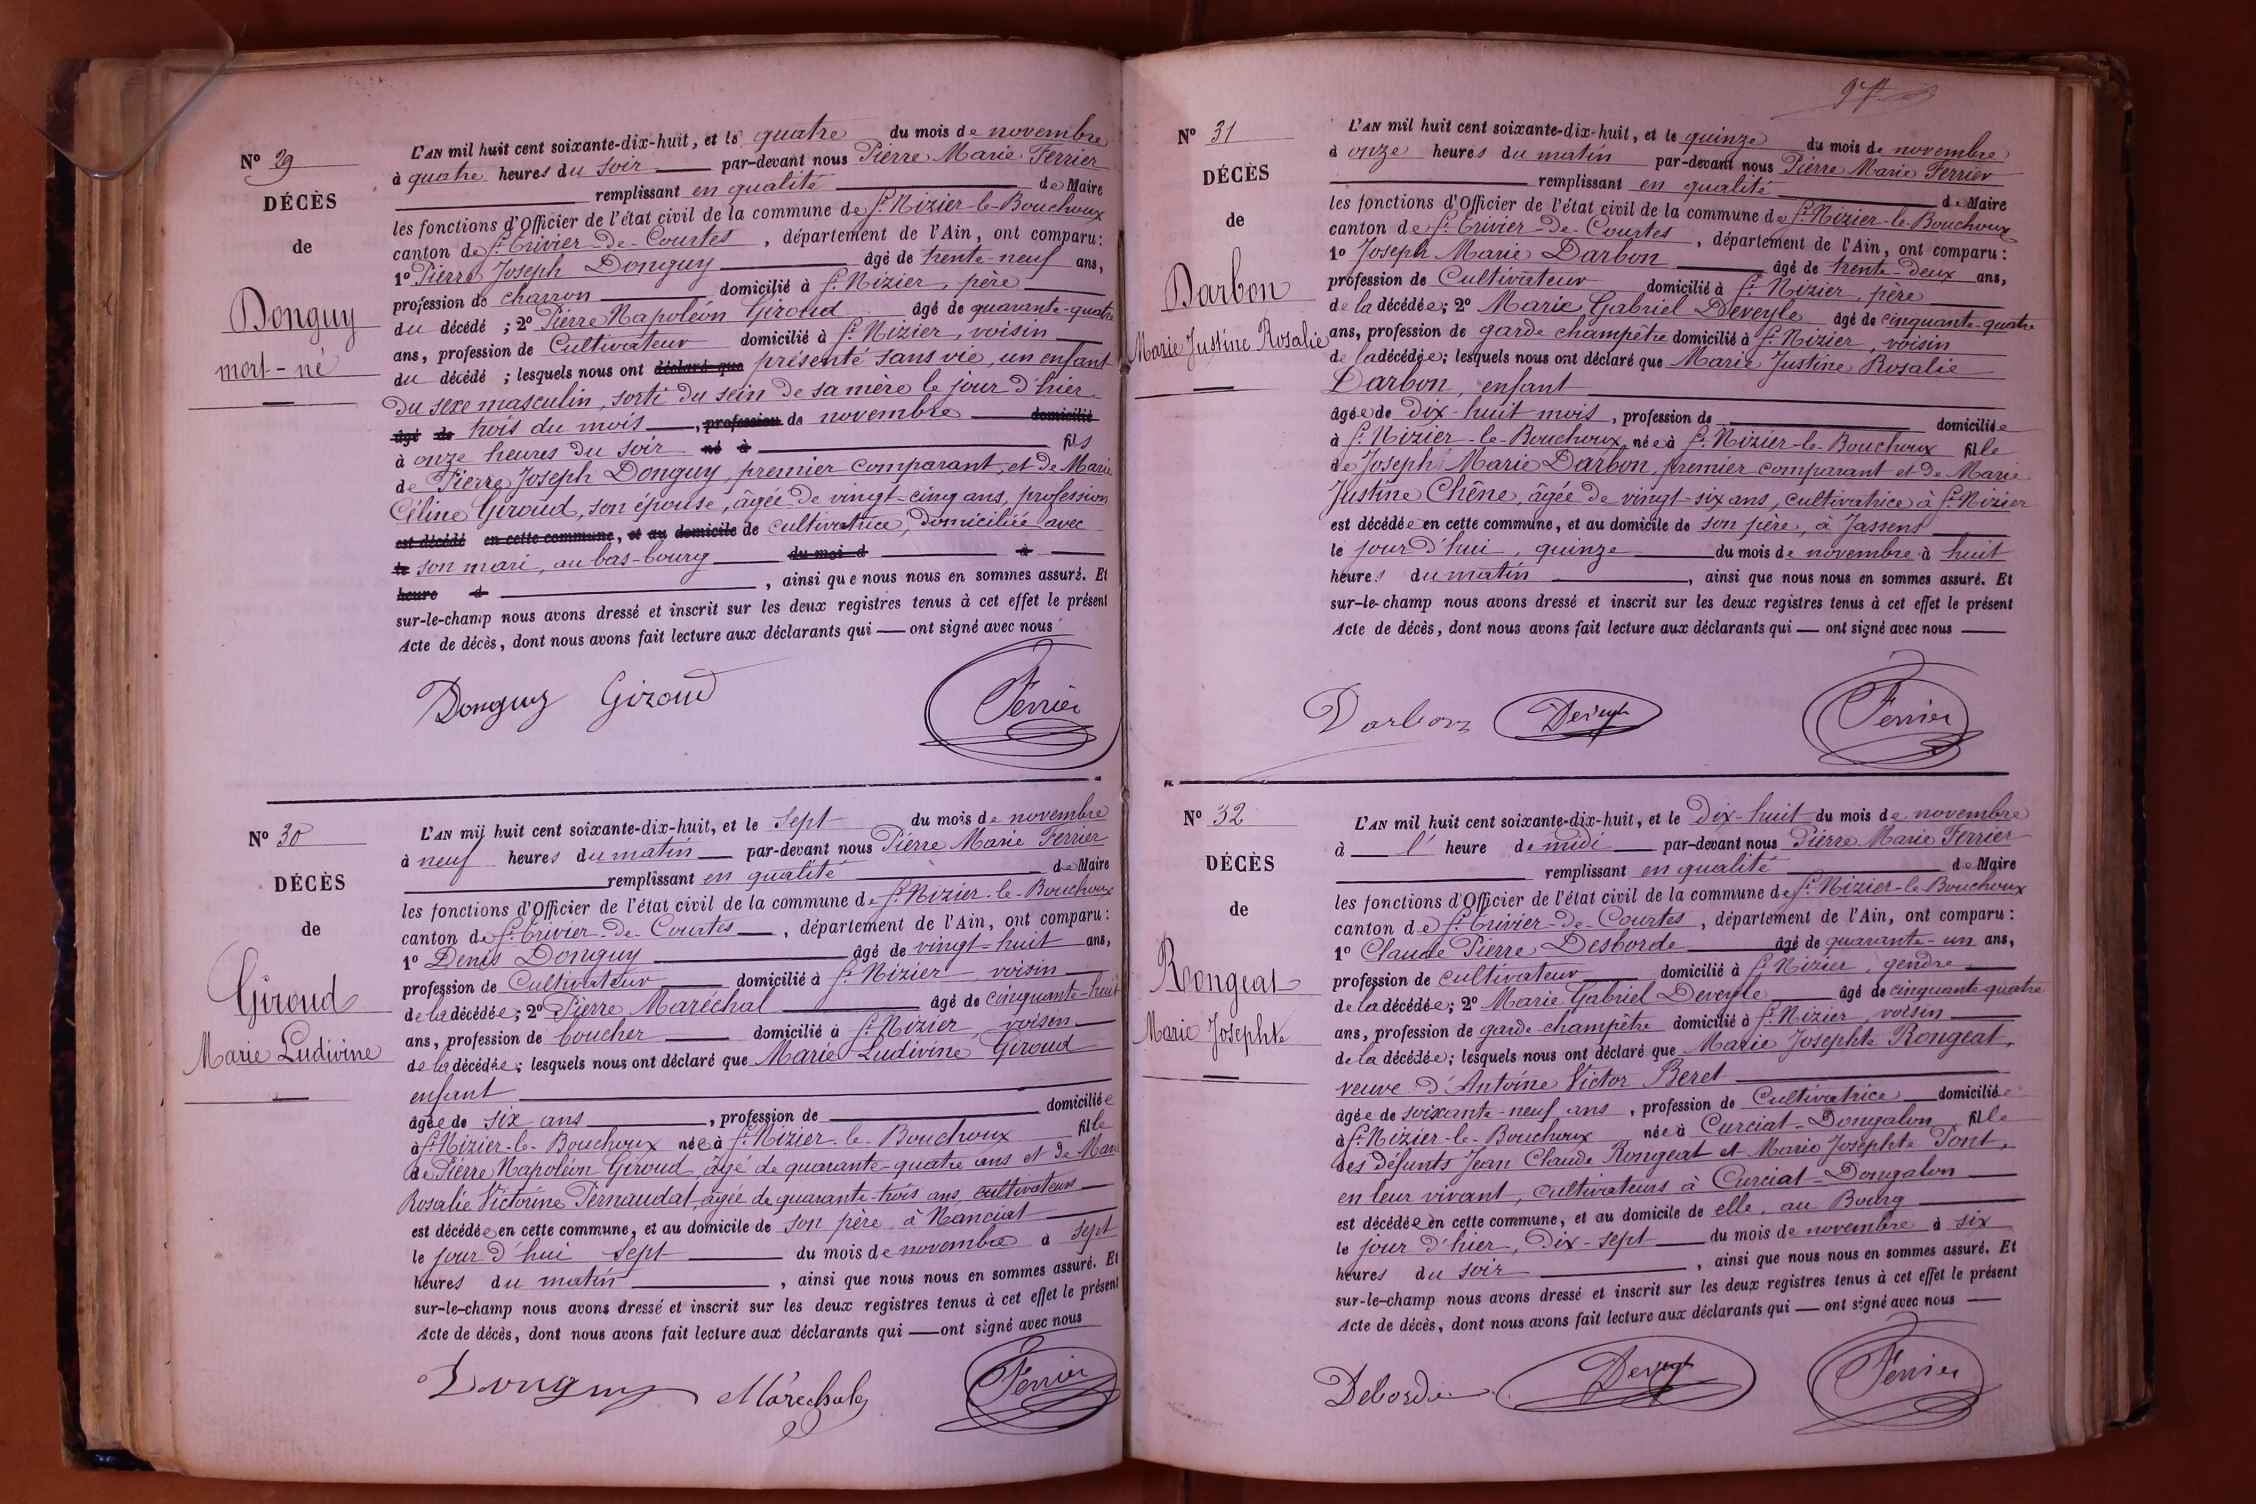 N° 29
DÉCÈS
de
Donguy
mort-né
L'AN mil huit cent soixante-dix-huit, et le quatre du mois de novembre
à quatre heures du soir par-devant nous Pierre Marie Ferrier
remplissant en qualité de Maire
les fonctions d'Officier de l'état civil de la commune de St Nizier-le-Bouchoux
canton de St Trivier-de-Courtes, département de l'Ain, ont comparu:
1° Pierre Joseph Donguy âgé de trente-neuf ans,
profession de charron domicilié à St Nizier, père
du décédé ; 2° Pierre Napoléon Giroud âgé de quarante-quatre
ans, profession de Cultivateur domicilié à St Nizier, voisin
du décédé ; lesquels nous ont déclaré que présenté sans vie, un enfant
du sexe masculin, sorti du sein de sa mère le jour d'hier
âgé de trois du mois, profession de novembre domicilié
à onze heures du soir né à fils
de Pierre Joseph Donguy, premier comparant, et de Marie
Céline Giroud, son épouse, âgée de vingt-cinq ans, profession
est décédé en cette commune, et au domicile de cultivatrice, domiciliée avec
le son mari, au bas-bourg du moi d à
heure d , ainsi que nous nous en sommes assuré. Et
sur-le-champ nous avons dressé et inscrit sur les deux registres tenus à cet effet le présent
Acte de décès, dont nous avons fait lecture aux déclarants qui — ont signé avec nous
Donguy Giroud Ferrier
N° 30
DÉCÈS
de
Giroud
Marie Ludivine
L'AN mil huit cent soixante-dix-huit, et le sept du mois de novembre
à neuf heures du matin par-devant nous Pierre Marie Ferrier
remplissant en qualité de Maire
les fonctions d'Officier de l'état civil de la commune de St Nizier-le-Bouchoux
canton de St Trivier-de-Courtes, département de l'Ain, ont comparu:
1° Denis Donguy âgé de vingt-huit ans,
profession de Cultivateur domicilié à St Nizier, voisin
de la décédée ; 2° Pierre Maréchal âgé de cinquante-huit
ans, profession de boucher domicilié à St Nizier, voisin
de la décédée ; lesquels nous ont déclaré que Marie Ludivine Giroud
enfant
âgée de six ans, profession de domiciliée
à St Nizier-le-Bouchoux née à St Nizier-le-Bouchoux fille
de Pierre Napoléon Giroud, âgé de quarante-quatre ans et de Marie
Rosalie Victorine Pernaudat, âgée de quarante-trois ans, cultivateurs
est décédée en cette commune, et au domicile de son père, à Nanciat
le jour d'hui sept du mois de novembre à sept
heures du matin, ainsi que nous nous en sommes assuré. Et
sur-le-champ nous avons dressé et inscrit sur les deux registres tenus à cet effet le présent
Acte de décès, dont nous avons fait lecture aux déclarants qui — ont signé avec nous
Donguy Maréchal Ferrier
N° 31
DÉCÈS
de
Darbon
Marie Justine Rosalie
L'AN mil huit cent soixante-dix-huit, et le quinze du mois de novembre
à onze heures du matin par-devant nous Pierre Marie Ferrier
remplissant en qualité de Maire
les fonctions d'Officier de l'état civil de la commune de St Nizier-le-Bouchoux
canton de St Trivier-de-Courtes, département de l'Ain, ont comparu:
1° Joseph Marie Darbon âgé de trente-deux ans,
profession de Cultivateur domicilié à St Nizier, père
de la décédée ; 2° Marie Gabriel Deveyle âgé de cinquante-quatre
ans, profession de garde champêtre domicilié à St Nizier, voisin
de la décédée ; lesquels nous ont déclaré que Marie Justine Rosalie
Darbon, enfant
âgée de dix-huit mois, profession de domiciliée
à St Nizier-le-Bouchoux, née à St Nizier-le-Bouchoux fille
de Joseph Marie Darbon, premier comparant et de Marie
Justine Chêne, âgée de vingt-six ans, cultivatrice à St Nizier
est décédée en cette commune, et au domicile de son père, à Jassens
le jour d'hui, quinze du mois de novembre à huit
heures du matin, ainsi que nous nous en sommes assuré. Et
sur-le-champ nous avons dressé et inscrit sur les deux registres tenus à cet effet le présent
Acte de décès, dont nous avons fait lecture aux déclarants qui — ont signé avec nous
Darbon Deveyle Ferrier
N° 32
DÉCÈS
de
Rongeat
Marie Josephte
L'AN mil huit cent soixante-dix-huit, et le Dix-huit du mois de novembre
à l' heure de midi par-devant nous Pierre Marie Ferrier
remplissant en qualité de Maire
les fonctions d'Officier de l'état civil de la commune de St Nizier-le-Bouchoux
canton de St Trivier-de-Courtes, département de l'Ain, ont comparu:
1° Claude Pierre Desborde âgé de quarante-un ans,
profession de cultivateur domicilié à St Nizier, gendre
de la décédée ; 2° Marie Gabriel Deveyle âgé de cinquante-quatre
ans, profession de garde-champêtre domicilié à St Nizier, voisin
de la décédée ; lesquels nous ont déclaré que Marie Josephte Rongeat,
veuve d'Antoine Victor Beret
âgée de soixante-neuf ans, profession de Cultivatrice domiciliée
à St Nizier-le-Bouchoux née à Curciat-Dongalon fille
des défunts Jean Claude Rongeat et Marie Josephte Pont,
en leur vivant, cultivateurs à Curciat-Dongalon
est décédée en cette commune, et au domicile de elle, au Bourg
le jour d'hier, Dix-sept du mois de novembre à six
heures du soir, ainsi que nous nous en sommes assuré. Et
sur-le-champ nous avons dressé et inscrit sur les deux registres tenus à cet effet le présent
Acte de décès, dont nous avons fait lecture aux déclarants qui — ont signé avec nous
Deborde Deveyle Ferrier